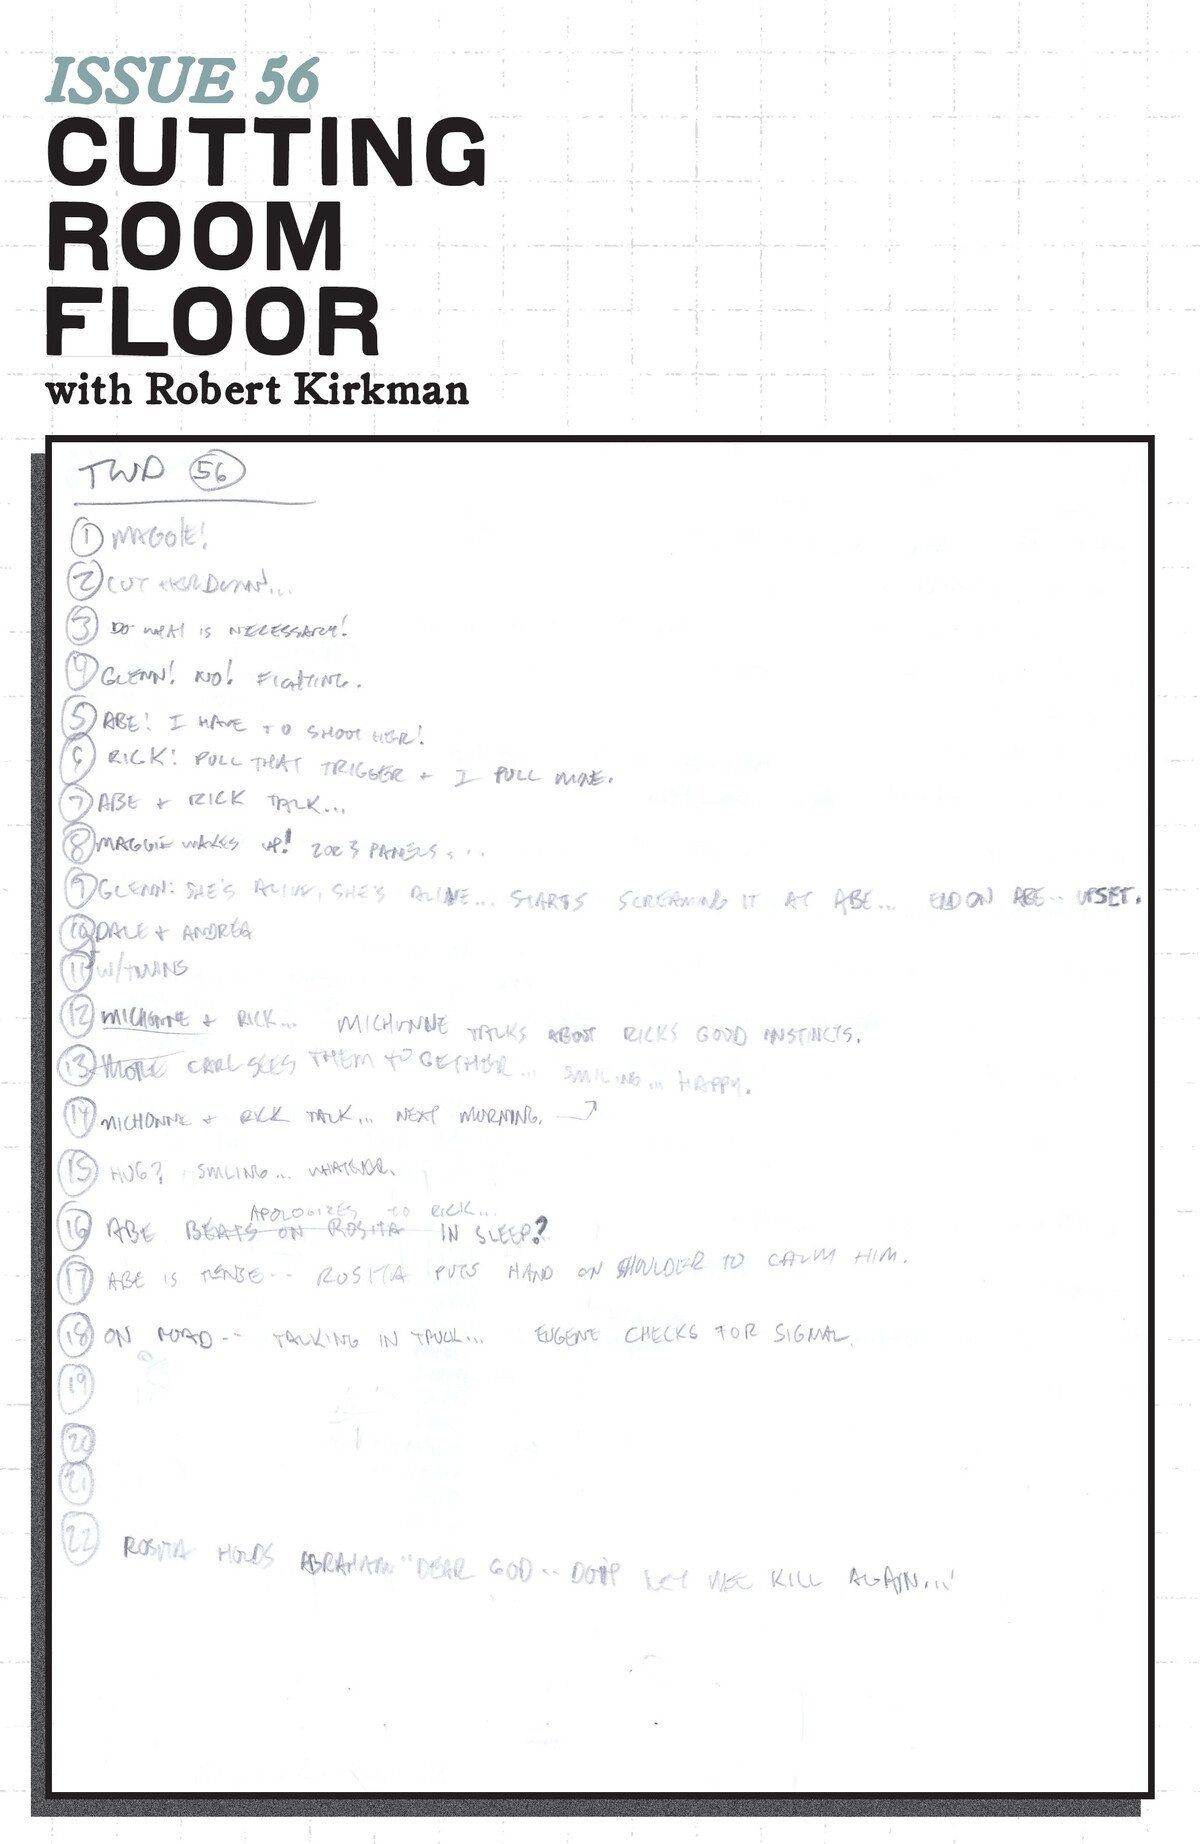 ISSUE 56
CUTTING
ROOM
FLOOR
with Robert Kirkman
TWD 56
1 MAGGIE!
2 CUT HER DOWN!...
3 DO WHAT IS NECESSARY!
4 GLENN! NO! FIGHTING.
5 ABE! I HAVE TO SHOOT HER!
6 RICK! PULL THAT TRIGGER + I PULL MINE.
7 ABE + RICK TALK...
8 MAGGIE WAKES UP! 2 OR 3 PANELS...
9 GLENN: SHE'S ALIVE, SHE'S ALIVE... STARTS SCREAMING IT AT ABE... END ON ABE.. UPSET.
10 DALE + ANDREA
11 W/TWINS
12 MICHONNE + RICK... MICHONNE TALKS ABOUT RICKS GOOD INSTINCTS.
13 MORE CARL SEES THEM TOGETHER... SMILING... HAPPY.
14 MICHONNE + RICK TALK... NEXT MORNING.
15 HUG? SMILING... WHATEVER.
APOLOGIZES TO RICK...
16 ABE BEATS ON ROSITA IN SLEEP?
17 ABE IS TENSE.. ROSITA PUTS HAND ON SHOULDER TO CALM HIM.
18 ON ROAD.. TALKING IN TRUCK... EUGENE CHECKS FOR SIGNAL.
19
20
21
22 ROSITA HOLDS ABRAHAM "DEAR GOD.. DON'T LET ME KILL AGAIN..."